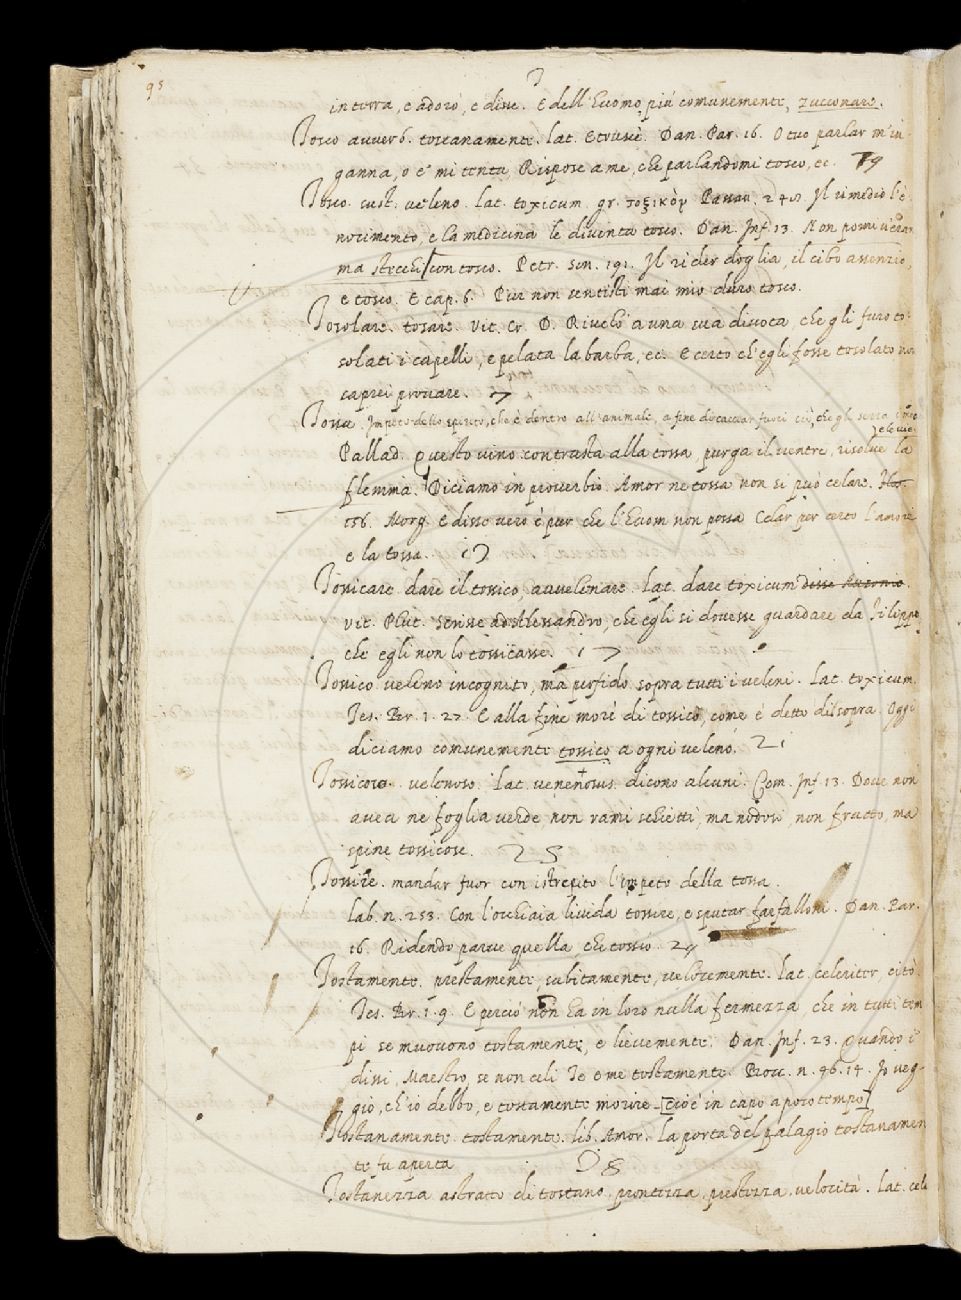 95
T
in terra, e adorò, e disse. E dell'Huomo più comunemente, zucconare.
Tosco avverb. toscanamente. lat. etruscè. Dan. Par. 16. O tuo parlar m'in-
ganna, o e' mi tenta, Rispose a me, che parlandomi tosco, ec. 19
Tosco. sust. veleno. lat. toxicum. gr. τοξικὸν Passav. 240. Il rimedio l'è
nocimento, e la medicina le diventa tosco. Dan. Inf. 13. Non pomi v'eran
ma stecchi con tosco. Petr. son. 191. Il rider doglia, il cibo assenzio,
e tosco. E cap. 6. Pur non sentisti mai mio duro tosco.
Tosolare. tosare. Vit. Cr. D. Rivelò a una sua divota, che gli furo to-
solati i capelli, e pelata la barba, ec. E certo ch'egli fosse tosolato non
saprei provare. 7
Tossa. Impeto dello spirito, che è dentro all'animale, a fine di cacciar fuori ciò, che gli serra
le vie.
Pallad. Questo vino contrasta alla tossa, purga il ventre, risolve la
flemma. Diciamo in proverbio. Amor ne tossa non si può celare.
156. Morg. E disse vero è pur che l'huom non possa Celar per certo l'amore
e la tossa. 12
Tossicare. dare il tossico, avvelenare. Lat. dare toxicum disse Antonio.
vit. Plut. Scrisse ad Alessandro, che egli si dovesse guardare da Filippo
che egli non lo tossicasse. 17
Tossico. veleno incognito, ma perfido sopra tutti i veleni. Lat. toxicum.
Tes. Br. 1. 27. E alla fine morì di tossico, come è detto di sopra. Oggi
diciamo comunemente tossico a ogni veleno. 21
Tossicoso. velenoso. Lat. venenosus. dicono alcuni. Com. Inf. 13. Dove non
avea ne foglia verde, non rami schietti, ma nodosi, non frutto, ma
spine tossicose. 25
Tossire. mandar fuor con istrepito l'impeto della tossa.
Lab. n. 253. Con l'occhiaia livida tossire, e sputar farfalloni. Dan. Par.
16. Ridendo parve quella che tossio.
Tostamente. prestamente, subitamente, velocemente. Lat. celeriter, citò.
Tes. Br. 1. 9. E perciò non ha in loro nulla fermezza, che in tutti tem
pi se muovono tostamente, e lievemente. Dan. Inf. 23. Quando i'
dissi, Maestro, se non celi Te e me tostamente. Bocc. n. 46. 14. Io veg-
gio, ch'io debbo, e tostamente morire [cioè in capo a poco tempo]
Tostanamente. tostamente. lib. Amor. La porta del palagio tostanamen
te fu aperta 28
Tostanezza. astratto di tostano, prontezza, prestezza, velocità. Lat. cele